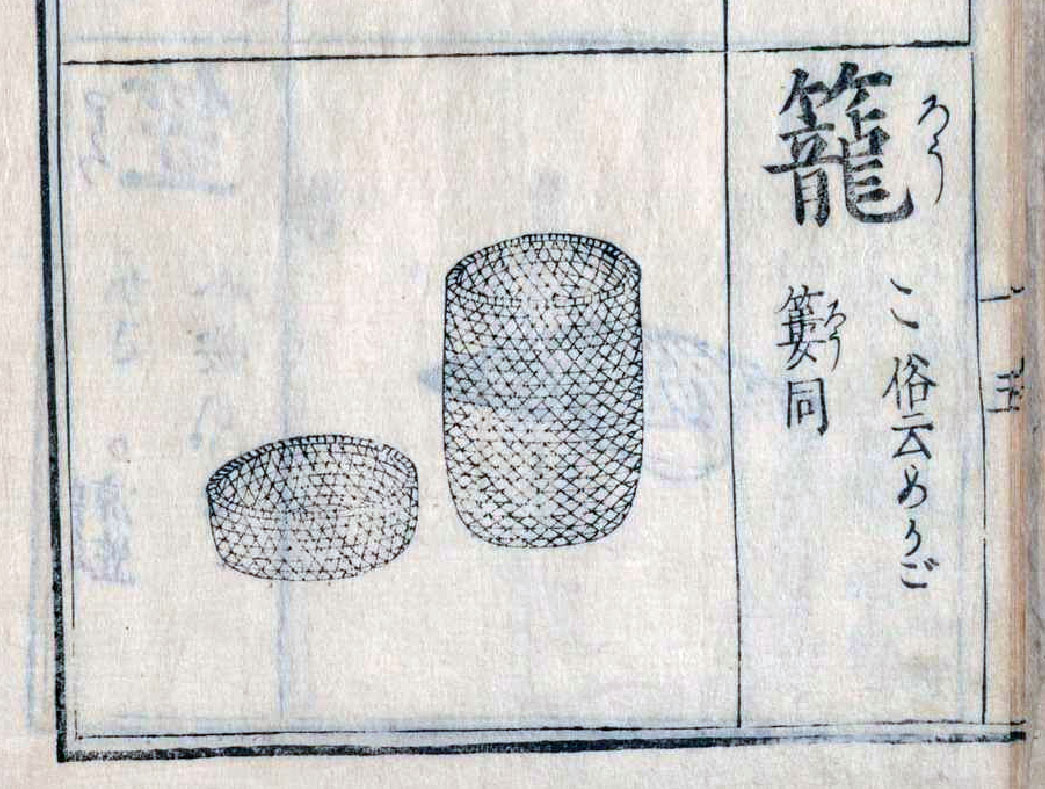 籠 ろう
こ 俗云めかご
簍同 ろう